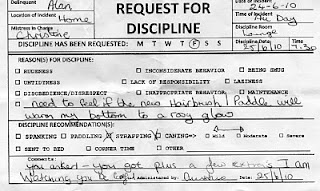 Delinquent Alan
REQUEST FOR
DISCIPLINE
Date of Incident
24-6-10
Location of Incident
Home
Time of Incident
All Day
Mistress in Charge
Christine
Discipline Room
Lounge
DISCIPLINE HAS BEEN REQUESTED: M T W T F S S
Date
25/6/10
Time
7.30
REASON(S) FOR DISCIPLINE:
RUDENESS
INCONSIDERATE BEHAVIOR
BEING SMUG
UNTIDINESS
LACK OF RESPONSIBILITY
LASINESS
DISOBEDIENCE/DISRESPECT
INAPPROPRIATE BEHAVIOR
MAINTENANCE
I need to feel if the new Hairbrush / Paddle will
warm my bottom to a rosy glow
DISCIPLINE RECOMMENDATION(S):
SPANKING
PADDLING
STRAPPING
CANING->
Mild
Moderate
Severe
SENT TO BED
CORNER TIME
OTHER
Comments:
you asked - you got plus a few extras I am
Watching you be
Administered by: Christine
Date: 25/6/10